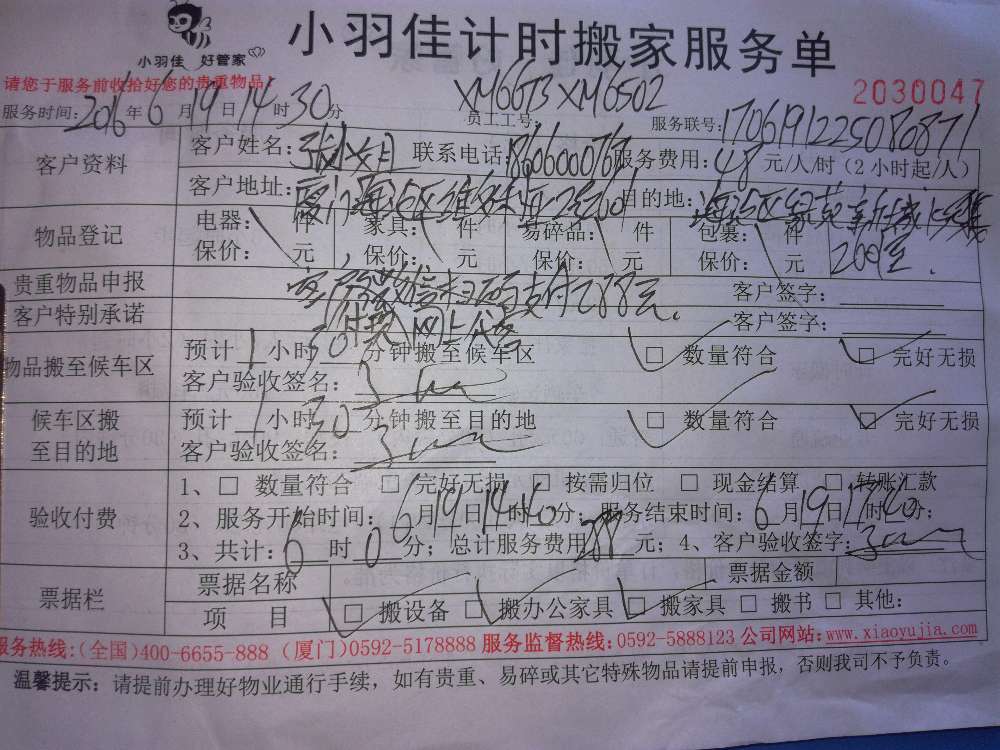 小羽佳 好管家
小羽佳计时搬家服务单
请您于服务前收拾好您的贵重物品!
2030047
服务时间: 2016年6月19日14时30分
员工工号: XM6673 XM6502
服务联号: 170619122508087 1
客户资料
客户姓名: 联系电话: 服务费用: 48元/人/时(2小时起/人)
客户地址: 厦门海沧区 目的地: 海沧区绿苑新城
物品登记
电器: 件 家具: 件 易碎品: 件 包裹: 件
保价: 元 保价: 元 保价: 元 保价: 元
贵重物品申报
微信扫码支付288元.
客户签字:
客户特别承诺
客户签字:
物品搬至候车区
预计1小时30分钟搬至候车区 □ 数量符合 □ 完好无损
客户验收签名:
候车区搬至目的地
预计1小时30分钟搬至目的地 □ 数量符合 □ 完好无损
客户验收签名:
验收付费
1、□ 数量符合 □ 完好无损 □ 按需归位 □ 现金结算 □ 转账汇款
2、服务开始时间: 6月19日14时40分; 服务结束时间: 6月19日17时40分;
3、共计: 6时0分; 总计服务费用288元; 4、客户验收签字:
票据栏
票据名称 票据金额
项 目 □ 搬设备 □ 搬办公家具 □ 搬家具 □ 搬书 □ 其他:
服务热线:(全国)400-6655-888 (厦门)0592-5178888 服务监督热线:0592-5888123 公司网站:www.xiaoyujia.com
温馨提示: 请提前办理好物业通行手续,如有贵重、易碎或其它特殊物品请提前申报,否则我司不予负责。